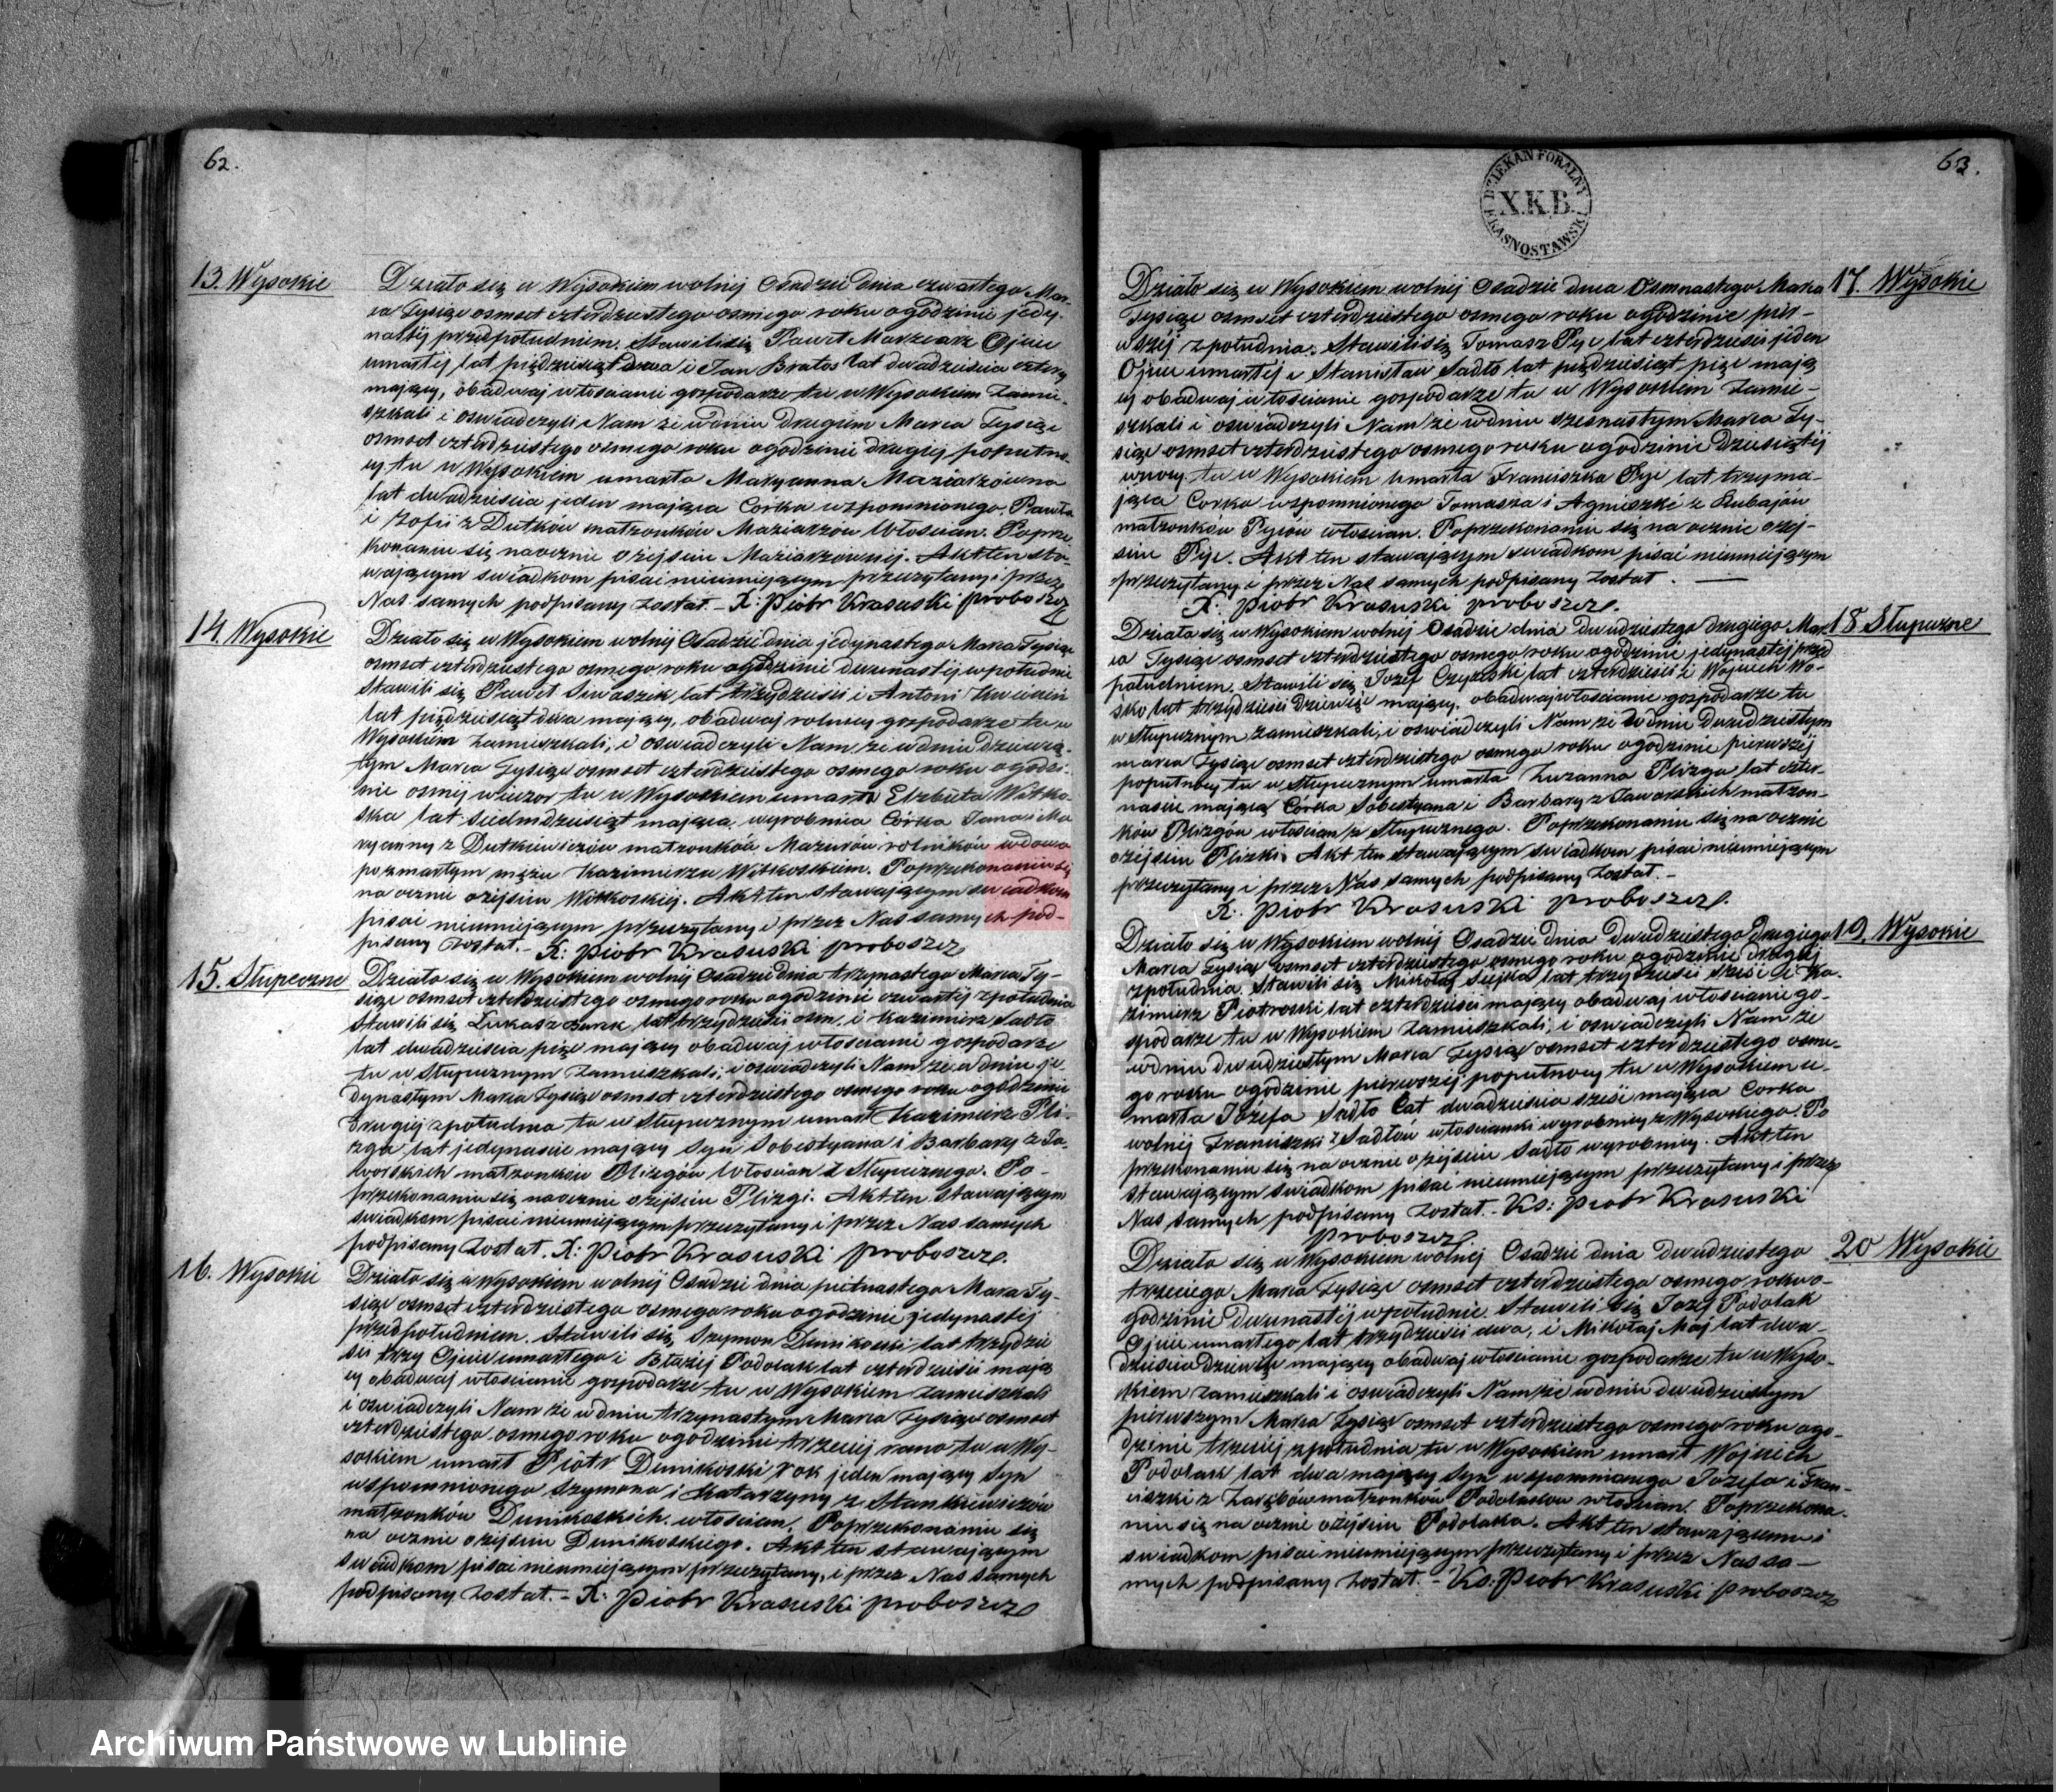 62.
13. Wysokie
Działo się w Wysokiem wolnéj Osadzie dnia czwartego Mar-
ca Tysiąc osmset czterdziestego osmego roku o godzinie jedy-
nastéj przed południem. Stawili się Paweł Maziarz Ojciec
umartéj lat pięćdziesiąt dwa i Jan Bratos lat dwadzieścia cztery
mający, obadwaj włościanie gospodarze tu w Wysokiem zamie-
szkali i oświadczyli Nam że w dniu drugim Marca Tysiąc
osmset czterdziestego osmego roku o godzinie drugiéj popułno-
cy tu w Wysokiem umarła Maryanna Maziarzówna
lat dwadzieścia jeden mająca Córka wspomnionego Pawła
i Zofii z Dutków małżonków Maziarzów Włościan. Poprze-
konaniu się naocznie o zejściu Maziarzownéj. Akt ten sta-
wającym świadkom pisać nieumiejącym przeczytany i przez
Nas samych podpisany został. – X. Piotr Krasuski proboszcz
14. Wysokie
Działo się w Wysokiem wolnéj Osadzie dnia jedynastego Marca Tysiąc
osmset czterdziestego osmego roku o godzinie dwunastéj w południe
Stawili się Paweł Iwaszek lat trzydzieści i Antoni
lat pięćdziesiąt dwa mający, obadwaj rolnicy gospodarze tu w
Wysokiem zamieszkali, i oświadczyli Nam że w dniu dziewią-
tym Marca Tysiąc osmset czterdziestego osmego roku o godzi-
nie osméj wieczor tu w Wysokiem umarła Elżbieta Witko-
ska lat siedmdziesiąt mająca, wyrobnica Córka Jana i Ma
ryanny z Dutkiewiczów małżonków Mazurów rolników wdowa
po zmarłym mężu Kazimierzu Witkoskim. Poprzekonaniu się
na ocznie o zejściu Witkoskiéj. Akt ten stawającym świadkom
pisać nieumiejącym przeczytany i przez Nas samych pod-
pisany został. – X. Piotr Krasuski proboszcz
15. Stupeczne
Działo się w Wysokiem wolnéj Osadzie dnia trzynastego Marca Ty-
siąc osmset czterdziestego osmego roku o godzinie czwartéj z południa
Stawili się Łukasz Żurek lat trzydzieści osm, i Kazimierz Sadło
lat dwadzieścia pięć mający obadwaj włościanie gospodarze
tu w Stupecznym zamieszkali, i oświadczyli Nam że w dniu je-
dynastym Marca Tysiąc osmset czterdziestego osmego roku o godzinie
drugiéj z południa tu w Stupecznym umarł Kazimierz Pli-
zga lat jedynaście mający Syn Sobestyana i Barbary z Ja-
worskich małżonków Plizgów Włościan z Stupecznego. Po-
przekonaniu się naocznie o zejściu Plizgi. Akt ten stawającym
świadkom pisać nieumiejącym przeczytany i przez Nas samych
podpisany został. X. Piotr Krasuski proboszcz.
16. Wysokie
Działo się w Wysokiem wolnéj Osadzie dnia piętnastego Marca Ty-
siąc osmset czterdziestego osmego roku o godzinie jedynastéj
przed południem. Stawili się Szymon Dunikoski lat trzydzie
ści trzy Ojciec umartego i Błażéj Podolak lat czterdzieści mają
cy obadwaj włościanie gospodarze tu w Wysokiem zamieszkali
i oświadczyli Nam że w dniu trzynastym Marca Tysiąc osmset
czterdziestego osmego roku o godzinie trzeciéj rano tu w Wy-
sokiem umarł Piotr Dunikoski rok jeden mający Syn
wspomnionego Szymona i Katarzyny z Stankiewiczów
małżonków Dunikoskich włościan. Poprzekonaniu się
na ocznie o zejściu Dunikoskiego. Akt ten stawającym
świadkom pisać nieumiejącym przeczytany, i przez Nas samych
podpisany został. – X. Piotr Krasuski proboszcz
DZIEKAN FORALNY
X.K.B.
KRASNOSTAWSKI
63.
17. Wysokie
Działo się w Wysokiem wolnéj Osadzie dnia Osmnastego Marca
Tysiąc osmset czterdziestego osmego roku o godzinie pier-
wszéj z południa. Stawili się Tomasz Pyc lat czterdzieści jeden
Ojciec umartéj i Stanisław Sadło lat pięćdziesiąt pięć mają
cy obadwaj włościanie gospodarze tu w Wysokiem zamie-
szkali i oświadczyli Nam że w dniu szesnastym Marca Ty-
siąc osmset czterdziestego osmego roku o godzinie dziesiątéj
w nocy tu w Wysokiem umarła Franciszka Pyc lat trzy ma-
jąca Córka wspomnionego Tomasza i Agnieszki z Kubajów
małżonków Pyców włościan. Poprzekonaniu się na ocznie o zej-
ściu Pyc. Akt ten stawającym świadkom pisać nieumiejącym
przeczytany i przez Nas samych podpisany został. —
X. Piotr Krasuski proboszcz.
18 Stupeczne
Działo się w Wysokiem wolnéj Osadzie dnia dwudziestego drugiego Mar
ca Tysiąc osmset czterdziestego osmego roku o godzinie jedynastéj przed
południem. Stawili się Józef lat czterdzieści i Wojciech Wo-
śko lat trzydzieści dziewięć mający, obadwaj włościanie gospodarze tu
w Stupecznym zamieszkali, i oświadczyli Nam że w dniu dwudziestym
marca Tysiąc osmset czterdziestego osmego roku o godzinie pierwszéj
popułnocy tu w Stupecznym umarła Zuzanna Plizga lat czter-
naście mająca Córka Sobestyana i Barbary z Jaworskich małżon-
ków Plizgów włościan z Stupecznego. Poprzekonaniu się na ocznie
o zejściu Plizki. Akt ten stawającym świadkom pisać nieumiejącym
przeczytany i przez Nas samych podpisany został. –
X. Piotr Krasuski proboszcz.
19. Wysokie
Działo się w Wysokiem wolnéj Osadzie dnia Dwudziestego drugiego
Marca Tysiąc osmset czterdziestego osmego roku o godzinie drugiéj
z południa. Stawili się Mikołaj Siejka lat trzydzieści sześć i Ka-
zimierz Piotroski lat czterdzieści mający obadwaj włościanie go-
spodarze tu w Wysokiem zamieszkali, i oświadczyli Nam że
w dniu dwudziestym Marca Tysiąc osmset czterdziestego osme-
go roku o godzinie pierwszéj popułnocy tu w Wysokiem u-
marła Józefa Sadło lat dwadzieścia sześć mająca Córka
wolnéj Franciszki z Sadłów włościanki wyrobnicy z Wysokiego. Po
przekonaniu się na ocznie o zejściu Sadło wyrobnicy. Akt ten
stawającym świadkom pisać nieumiejącym przeczytany i przez
Nas samych podpisany został. – Ks: Piotr Krasuski
proboszcz.
20 Wysokie
Działo się w Wysokiem wolnéj Osadzie dnia dwudziestego
trzeciego Marca Tysiąc osmset czterdziestego osmego roku o-
godzinie dwunastéj w południe. Stawili się Józef Podolak
Ojciec umartego lat trzydzieści dwa, i Mikołaj Maj lat dwa-
dzieścia dziewięć mający obadwaj włościanie gospodarze tu w Wyso-
kiem zamieszkali i oświadczyli Nam że w dniu dwudziestym
pierwszym Marca Tysiąc osmset czterdziestego osmego roku o go-
dzinie trzeciéj z południa tu w Wysokiem umarł Wojciech
Podolak lat dwa mający Syn wspomnionego Józefa i Fran-
ciszki z Zarębów małżonków Podolaków włościan. Poprzekona-
niu się na ocznie o zejściu Podolaka. Akt ten stawającemu i
świadkom pisać nieumiejącym przeczytany i przez Nas sa-
mych podpisany został. – Ks: Piotr Krasuski proboszcz
Archiwum Państwowe w Lublinie